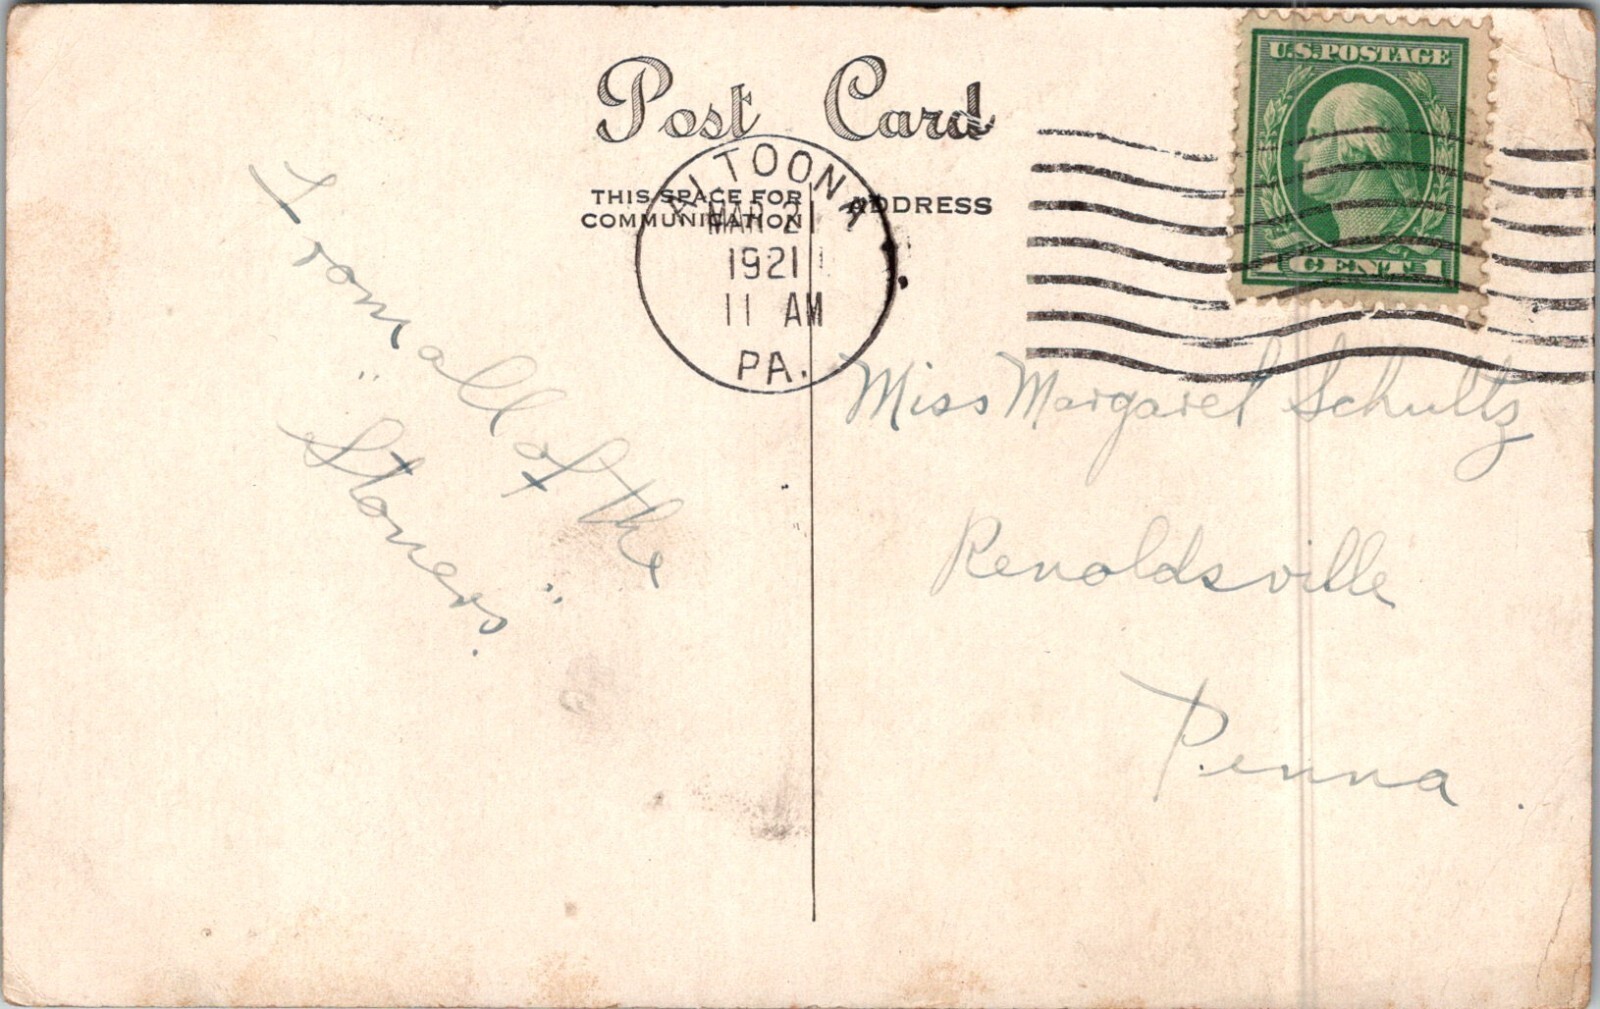 Post Card
THIS SPACE FOR
COMMUNICATION
ADDRESS
ALTOONA
MAR 21
1921
11 AM
PA.
U.S. POSTAGE
1 CENT 1
From all of the
"Stoners".
Miss Margaret Schultz
Renoldsville
Penna.